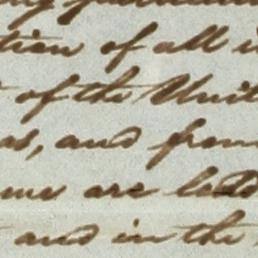 tion of all
of the Unit
as, and from
me are
and in the